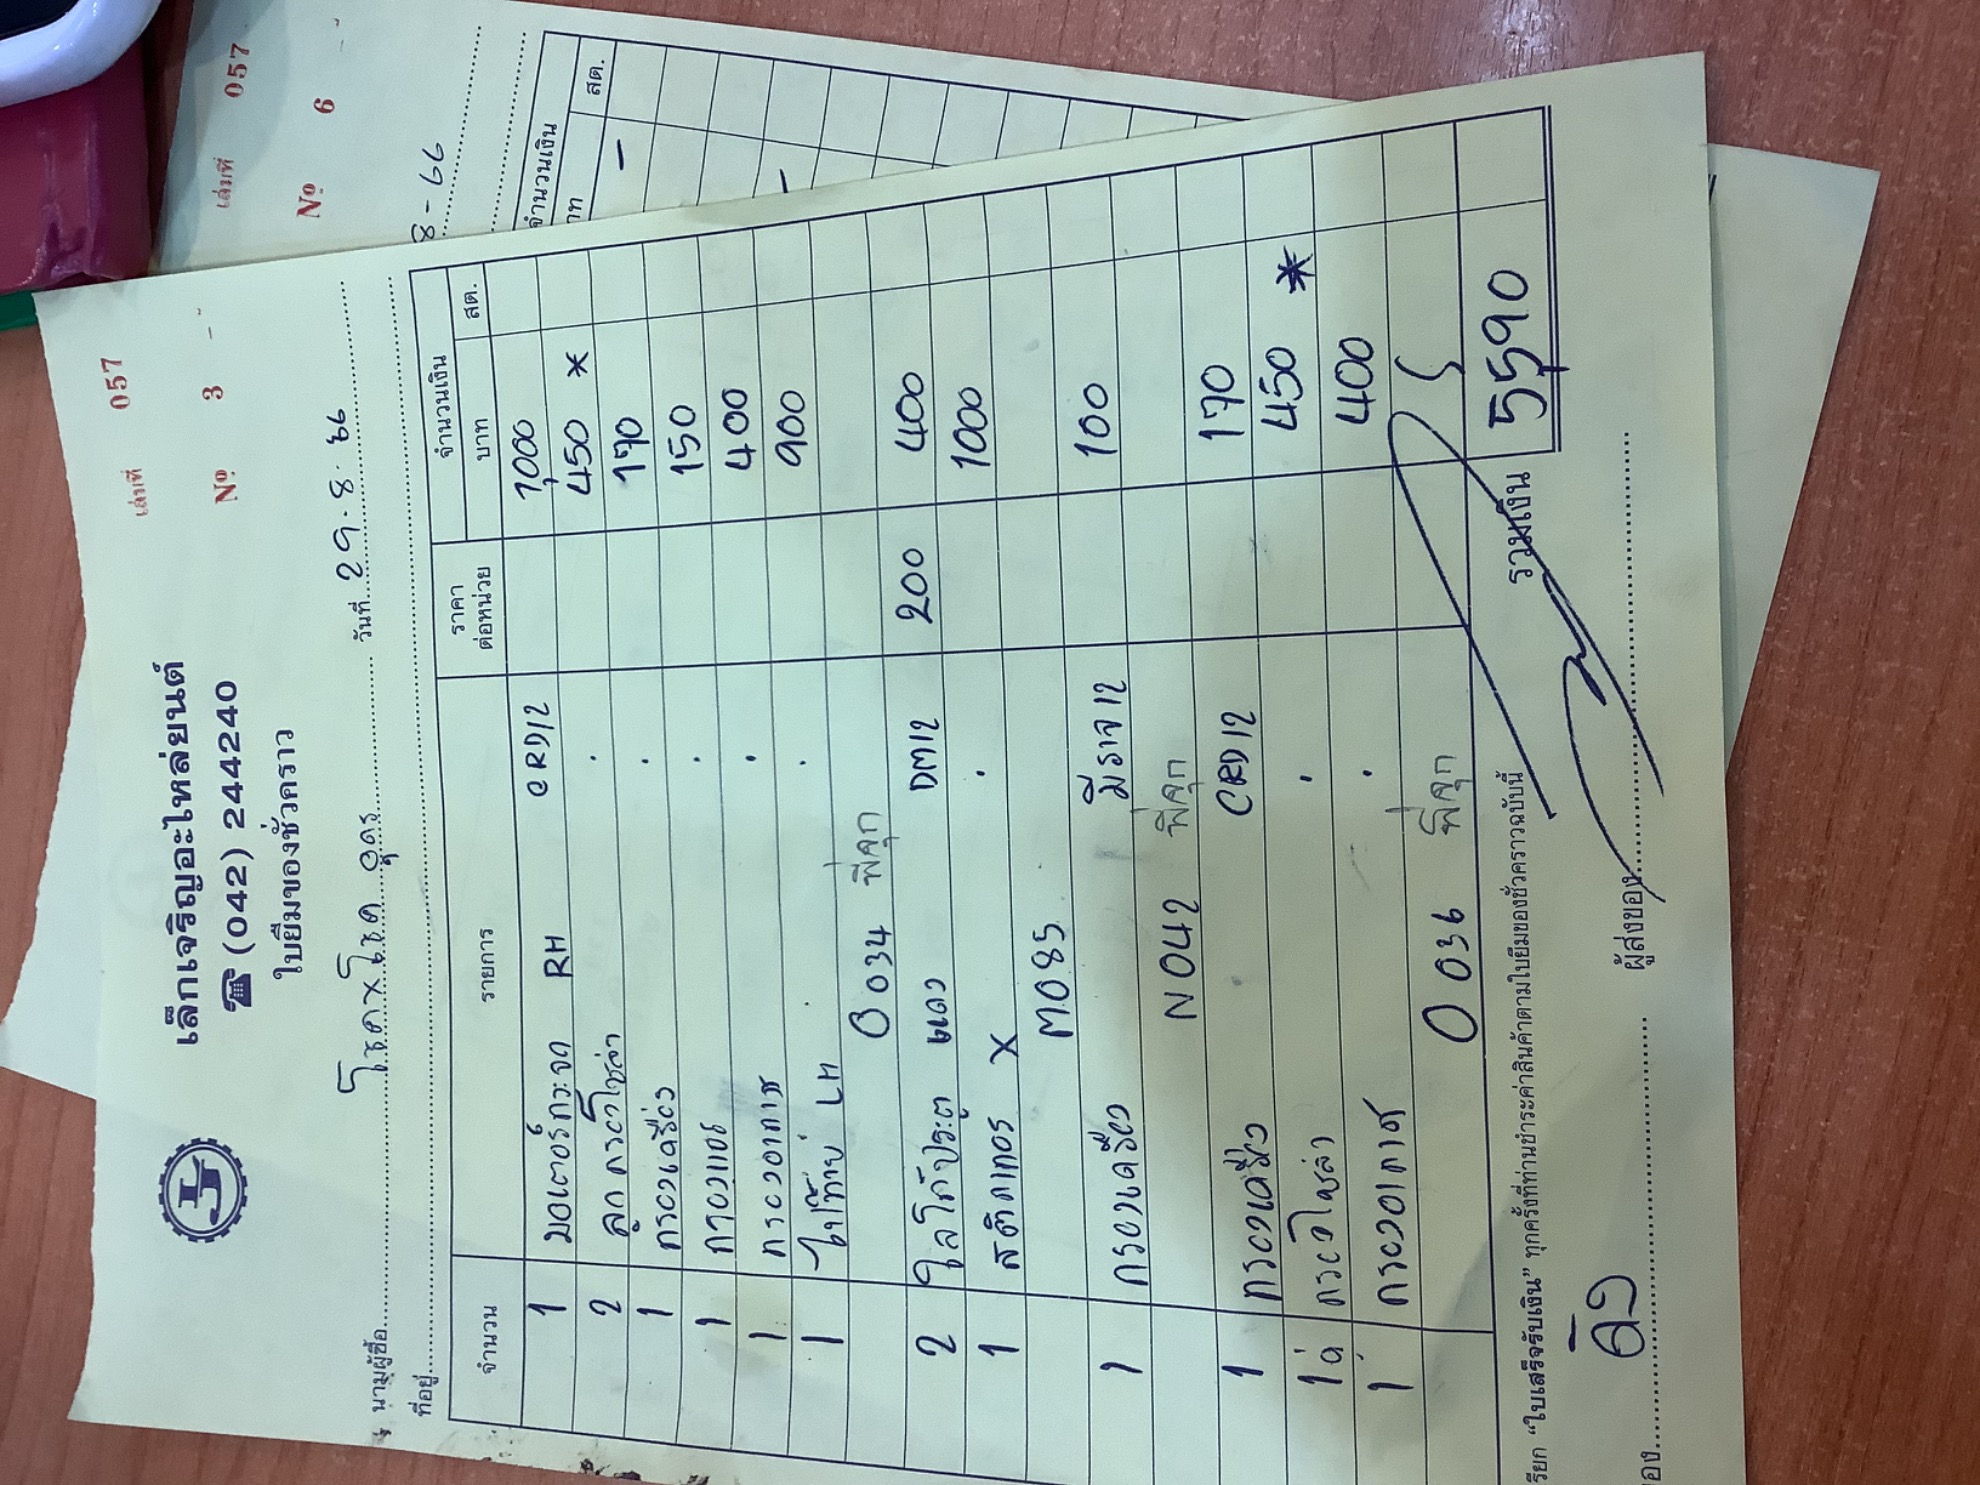 เล่มที่ 057
Nº 6
8-66
จำนวนเงิน
สต.
เล่มที่ 057
Nº 3
เล็กเจริญอะไหล่ยนต์
☎ (042) 244240
ใบยืมของชั่วคราว
นามผู้ซื้อ โชคxโชค อุดร วันที่ 29.8.66
ที่อยู่
จำนวน รายการ ราคาต่อหน่วย จำนวนเงิน
บาท สต.
1 มอเตอร์กระจก RH CRD12 1000
2 ลูกกรองโซล่า . 450 *
1 กรองเครื่อง . 170
1 กรองแอร์ . 150
1 กรองอากาศ . 400
1 ไฟท้าย LH . 900
O034 พี่จุก
2 โลโก้ประตู แดง DM12 200 400
1 สติกเกอร์ X . 1000
M085
1 กรองเครื่อง มิราจ 12 100
N042 พี่จุก
1 กรองเครื่อง CRD12 170
1 กรองโซล่า . 450 *
1 กรองอากาศ . 400
O036 พี่จุก
รวมเงิน 5590
เรียก "ใบเสร็จรับเงิน" ทุกครั้งที่ท่านชำระค่าสินค้าตามใบยืมของชั่วคราวฉบับนี้
ผู้ส่งของ